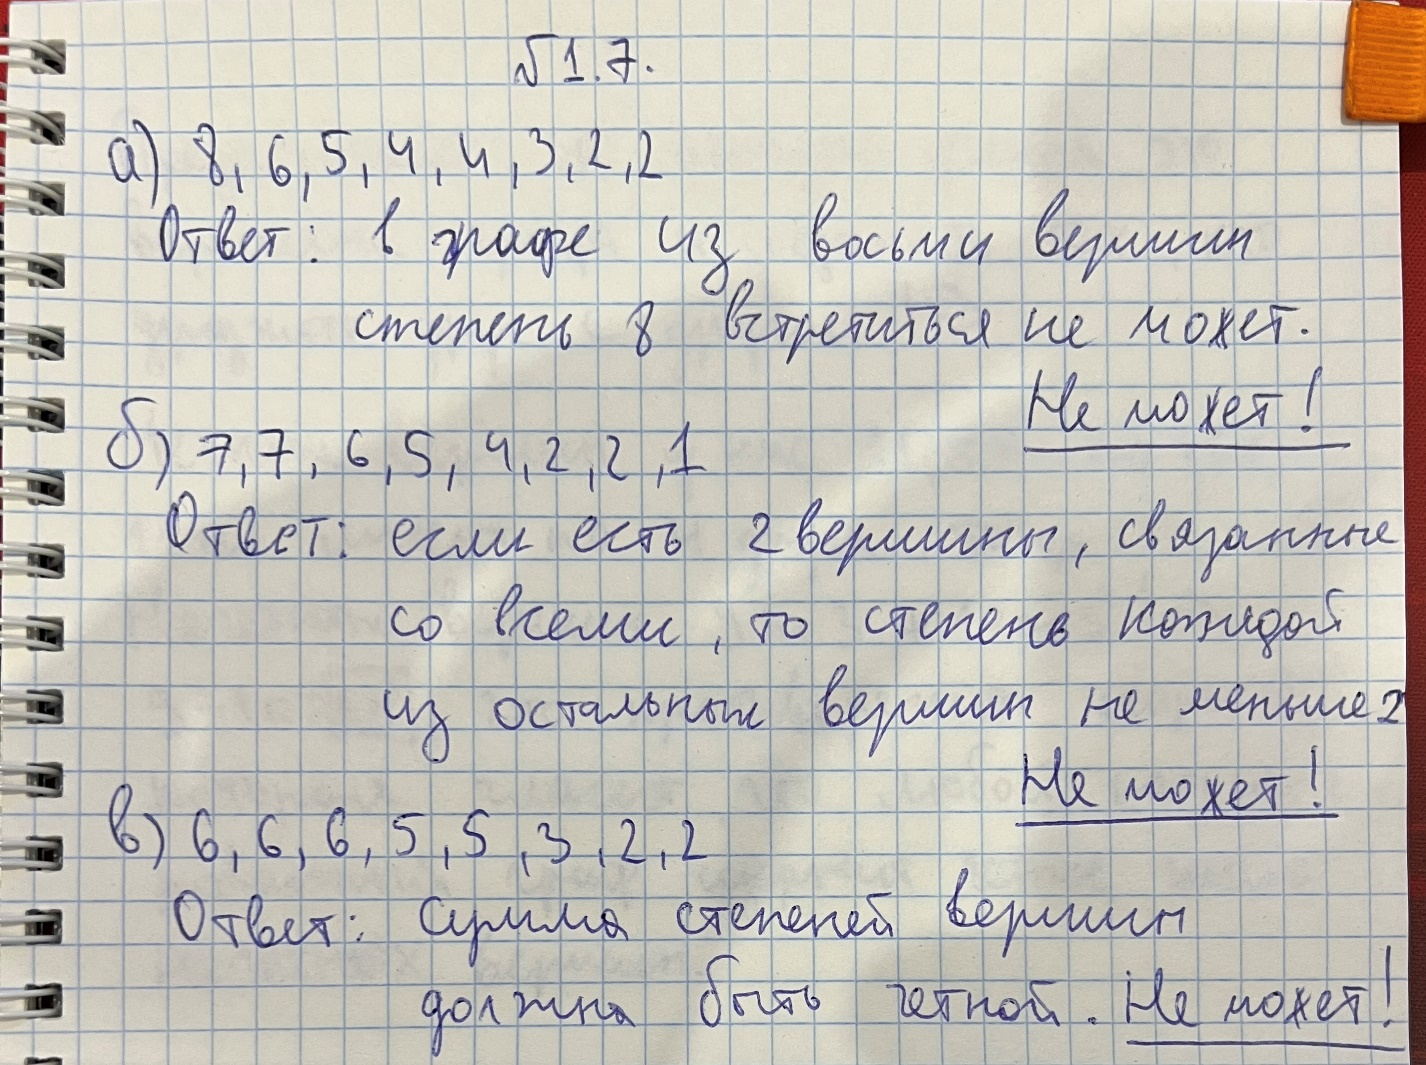 √1.7.
а) 8, 6, 5, 4, 4, 3, 2, 2
Ответ: в графе из восьми вершин
степень 8 встретиться не может.
Не может!
б) 7, 7, 6, 5, 4, 2, 2, 1
Ответ: если есть 2 вершины, связанные
со всеми, то степень каждой
из остальных вершин не меньше 2
Не может!
в) 6, 6, 6, 5, 5, 3, 2, 2
Ответ: Сумма степеней вершин
должна быть четной. Не может!